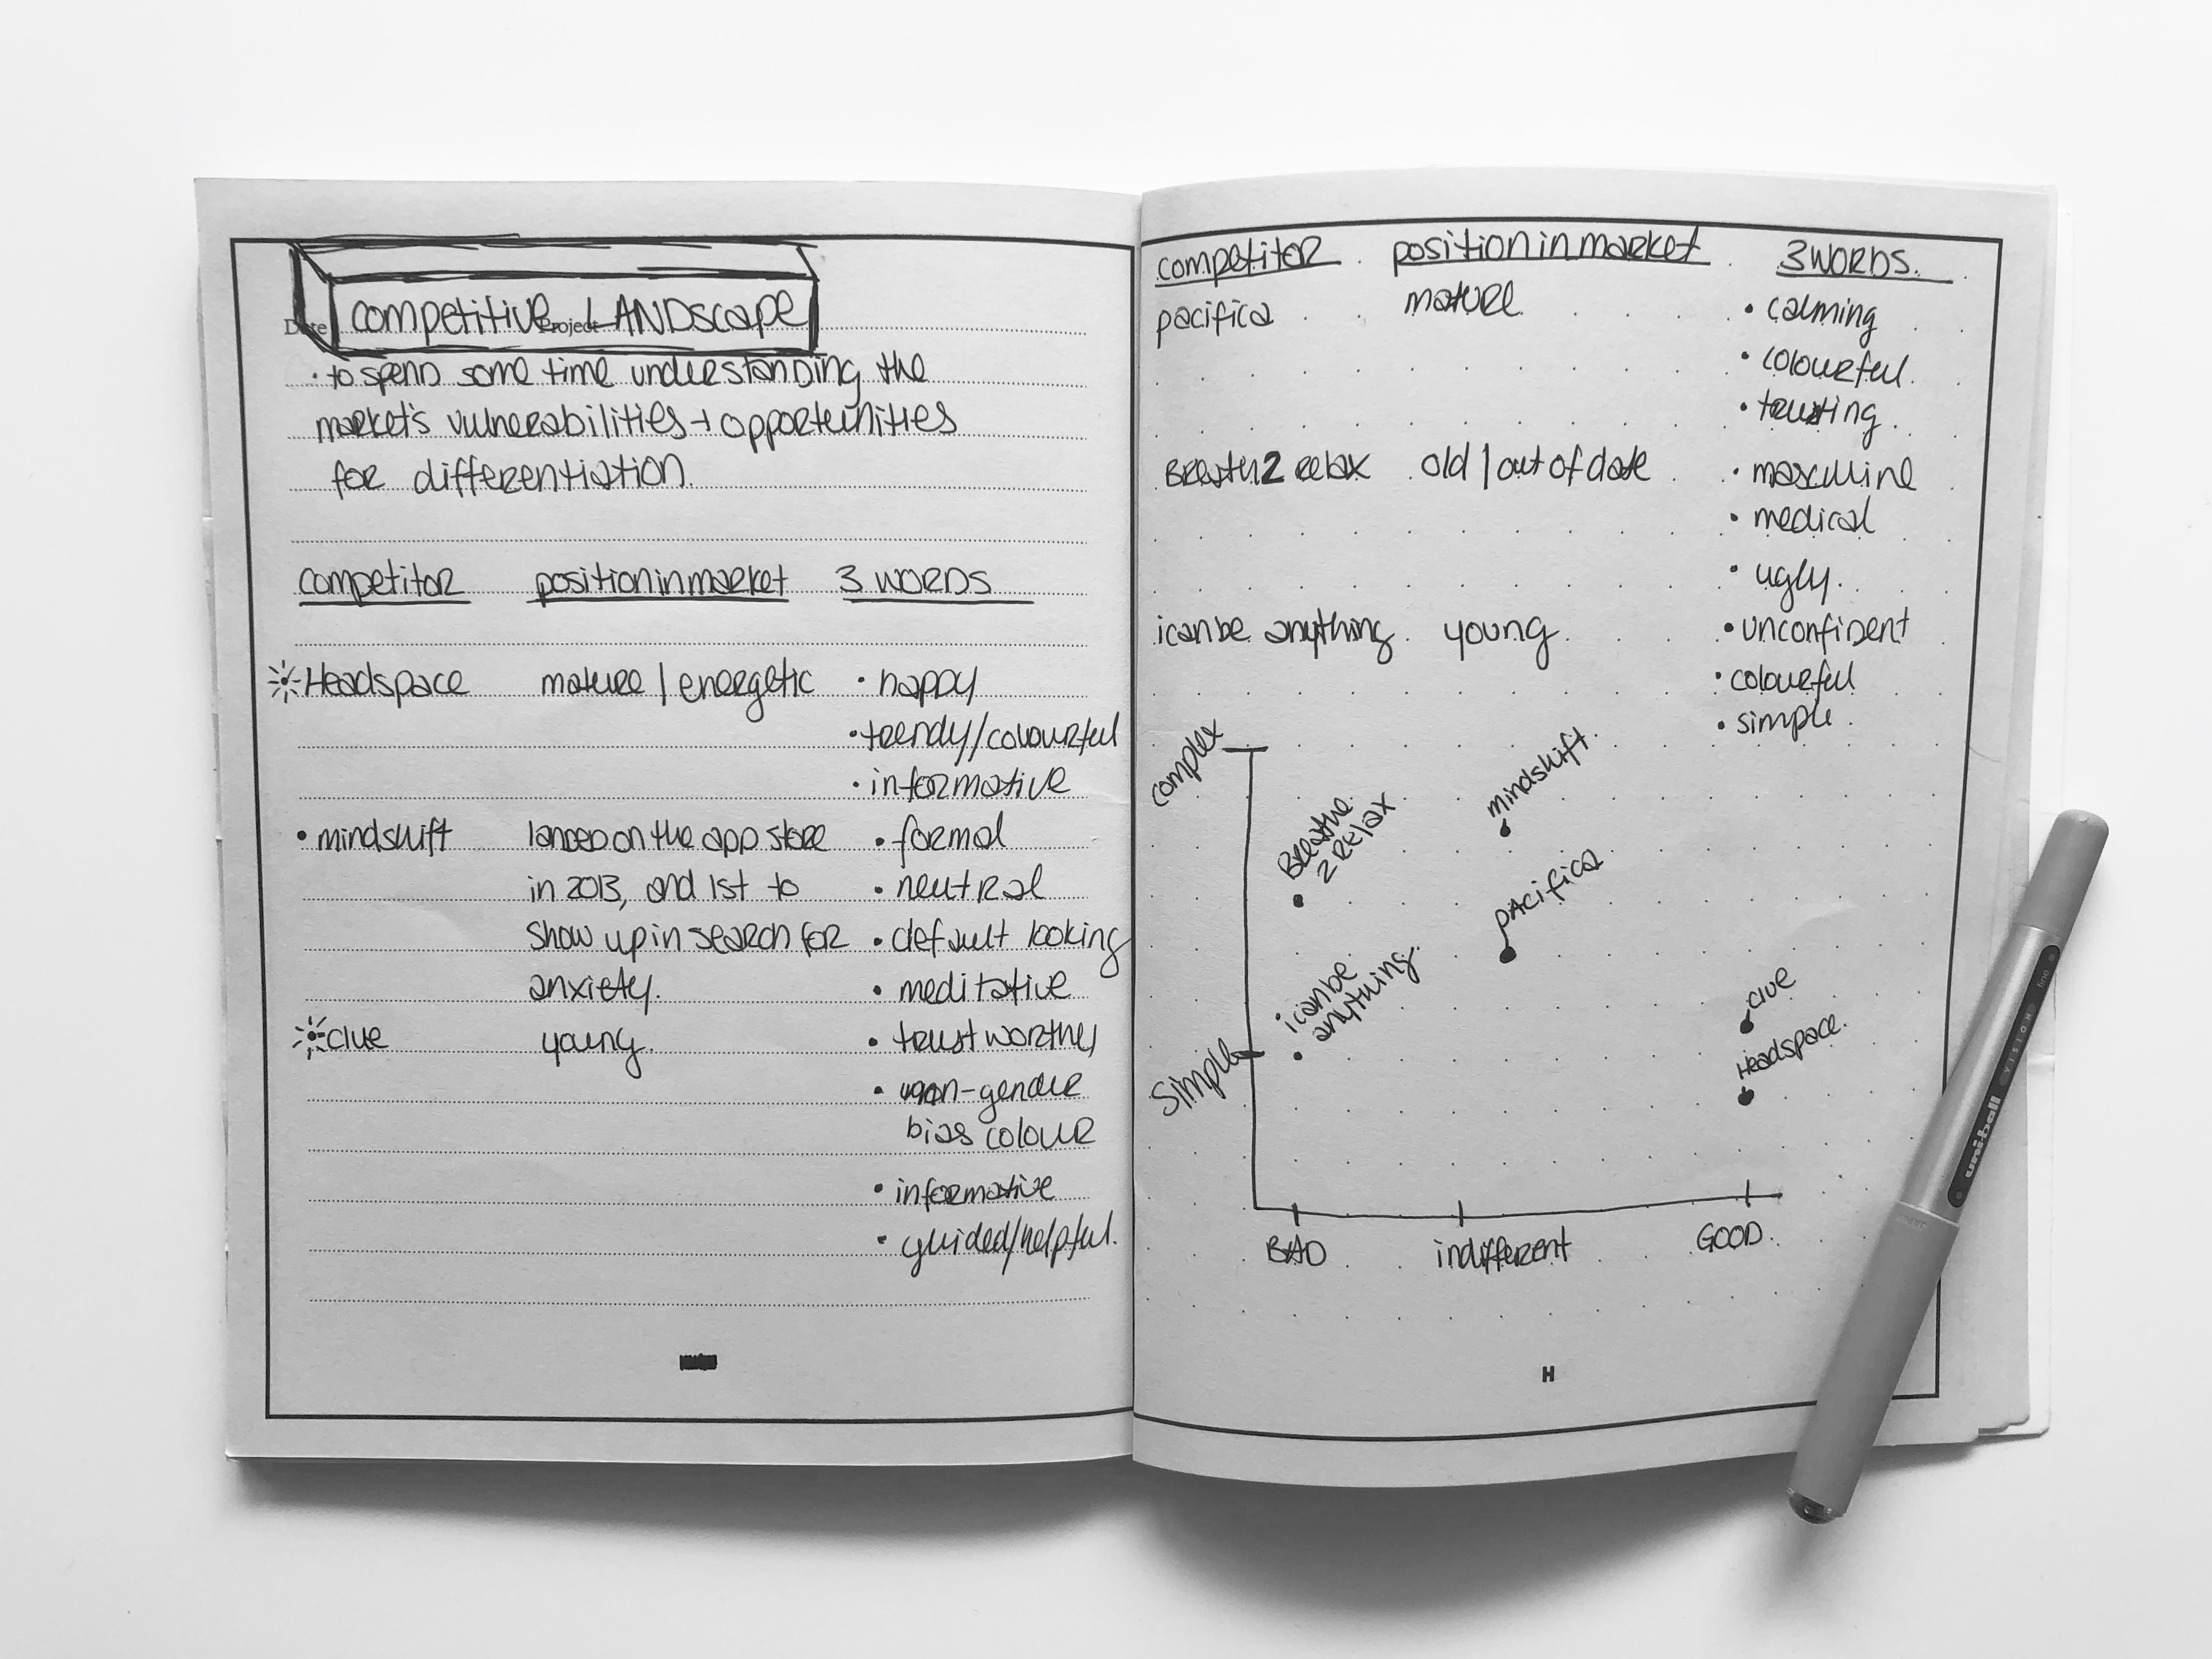 Date Project
competitive LANDscape
• to spend some time understanding the
market's vulnerabilities + opportunities
for differentiation.
competitor position in market 3 words
Headspace mature / energetic • happy
• trendy/colourful
• informative
• mindshift landed on the app store • formal
in 2013, and 1st to • neutral
show up in search for • default looking
anxiety. • meditative
clue young. • trustworthy
• non-gender
bias colour
• informative
• guided/helpful.
competitor position in market 3 words.
pacifica mature • calming
• colourful.
• trusting.
Breath 2 relax old / out of date • masculine
• medical
• ugly.
i can be anything. young. • unconfident
• colourful
• simple.
complex
mindshift.
Breathe
2 Relax
pacifica
i can be
anything.
clue
Simple
Headspace.
BAD indifferent GOOD.
H
uni-ball
VISION
fine